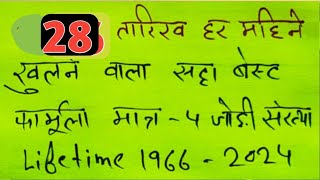 28 तारिख हर महिने
खुलने वाला सट्टा बेस्ट
फार्मूला मात्र - 4 जोड़ी संख्या
Lifetime 1966 - 2024